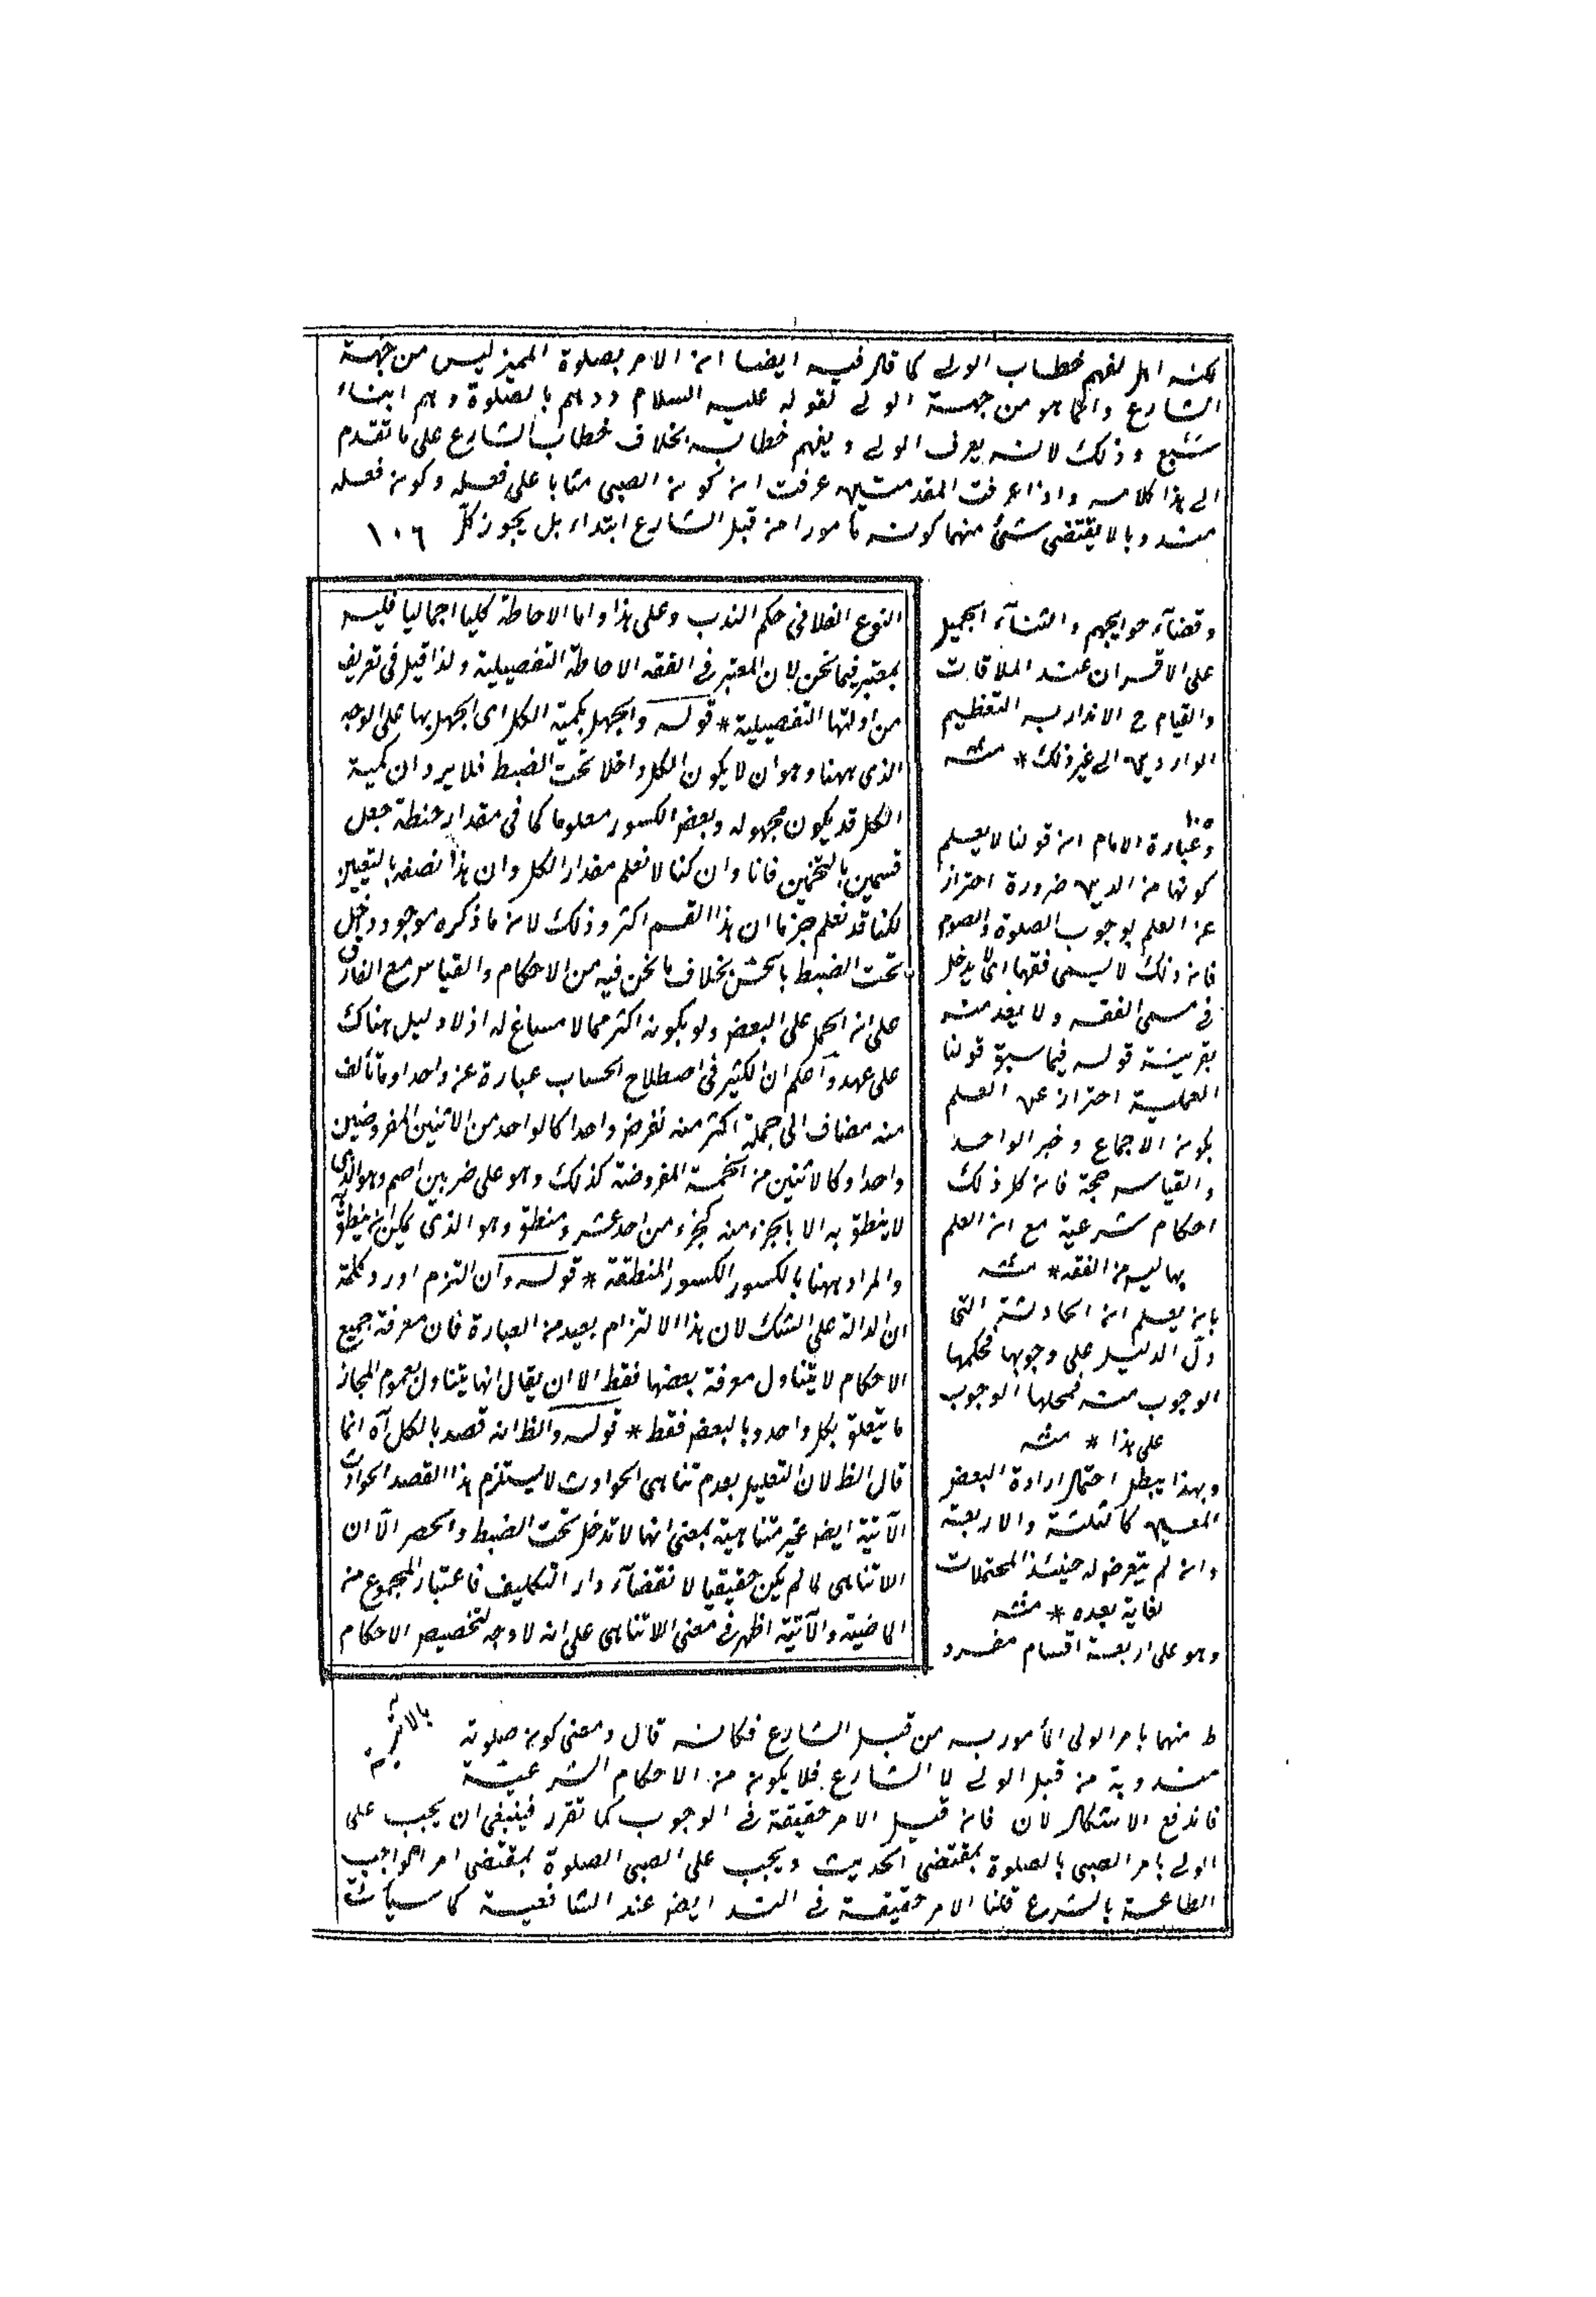 لكنه اهل لفهم خطاب الولي كما قال فيه ايضا ان الامر بصلوة المميز ليس من جهة
الشارع وانما هو من جهة الولي لقوله عليه السلام مروهم بالصلوة وهم ابناء
سبع وذلك لانه يعرف الولي ويفهم خطابه بخلاف خطاب الشارع على ما تقدم
الى هذا كلامه واذا عرفت المقدمتين عرفت ان كون الصبى مثابا على فعله وكون فعله
مندوبا لا يقتضى شئ منهما كونه مأمورا من قبل الشارع ابتداء بل يجوز كل ١٠٦
النوع الفلانى حكم الندب وعلى هذا واما الاحاطة كليا اجماليا فليس
بمعتبر فيما نحن لان المعتبر فى الفقه الاحاطة التفصيلية ولذا قيل فى تعريفه
من ادلتها التفصيلية * قوله والجهل بكمية الكل اى الجهل بها على الوجه
الذى ههنا وهو ان لا يكون الكل داخلا تحت الضبط فلا يرد ان كمية
الكل قد يكون مجهوله وبعض الكسور معلوما كما فى مقدار حنطة جعل
قسمين بالتخمين فانا وان كنا لا نعلم مقدار الكل وان هذا نصفه بالتعيين
لكنا قد نعلم جزما ان هذا القسم اكثر وذلك لان ما ذكره موجود دخل
تحت الضبط بالحس بخلاف ما نحن فيه من الاحكام والقياس مع الفارق
على ان الحمل على البعض ولو بكونه اكثر مما لا مساغ له اذ لا دليل هناك
على عهد واحكم ان الكثير فى اصطلاح الحساب عبارة عن واحد او ما تألف
منه مضاف الى جملة اكثر منه تفرض واحدا كالواحد من الاثنين المفروضين
واحدا وكالاثنين من الخمسة المفروضة كذلك وهو على ضربين اصم وهو الذى
لا ينطق به الا بالجزء منه كجزء من احد عشر ومنطق وهو الذى يمكن ان ينطق به
والمراد ههنا بالكسور الكسور المنطقة * قوله وان التزم اورد كلمة
ان الدالة على الشك لان هذا الالتزام بعيد من العبارة فان معرفة جميع
الاحكام لا يتناول معرفة بعضها فقط الا ان يقال انها يتناول بعموم المجاز
ما يتعلق بكل واحد وبالبعض فقط * قوله والظ انه قصد بالكل آه انما
قال الظ لان التعليل بعدم تناهى الحوادث لا يستلزم هذا القصد الحوادث
الآتية ايض غير متناهية بمعنى انها لا تدخل تحت الضبط والحصر الّا ان
اللا تناهى لما لم يكن حقيقيا لانقضآء دار التكليف فاعتبار المجموع من
الماضية والآتية اظهر فى معنى اللا تناهى على انه لا وجه لتخصيص الاحكام
وقضآء حوايجهم والثنآء الجميل
على الاقران عند الملاقات
والقيام ح الاندارب التعظيم
الواردين الى غير ذلك * منه
١٠٥
وعبارة الامام ان قولنا لا يعلم
كونها من الدين ضرورة احتراز
عن العلم بوجوب الصلوة والصوم
فان ذلك لا يسمى فقها اى لا يدخل
فى مسمى الفقه ولا يعد منه
بقرينة قوله فيما سبق قولنا
العملية احتراز عن العلم
بكون الاجماع وخبر الواحد
والقياس حجة فان كل ذلك
احكام شرعية مع ان العلم
بها ليس من الفقه * منه
بان يعلم ان الحادثة التى
دلّ الدليل على وجوبها فحكمها
الوجوب منه فمحلها الوجوب
على هذا * منه
وبهذا يبطل احتمال ارادة البعض
المعين كالثلثة والاربعة
وان لم يتعرض له حينئذ المحتملات
لغاية بعده * منه
وهو على اربعة اقسام مفرد
ط منهما بامر الولى المأمور به من قبل الشارع فكانه قال ومعنى كون صلوته
مندوبة من قبل الولى لا الشارع فلا يكون من الاحكام الشرعية
فاندفع الاشكال لان فان قيل الامر حقيقة فى الوجوب كما تقرر فينبغى ان يجب على
الولى بامر الصبى بالصلوة بمقتضى الحديث ويجب على الصبى الصلوة بمقتضى امر الواجب
الطاعة بالشرع قلنا الامر حقيقة فى الند ايض عند الشافعية كما سيأتى